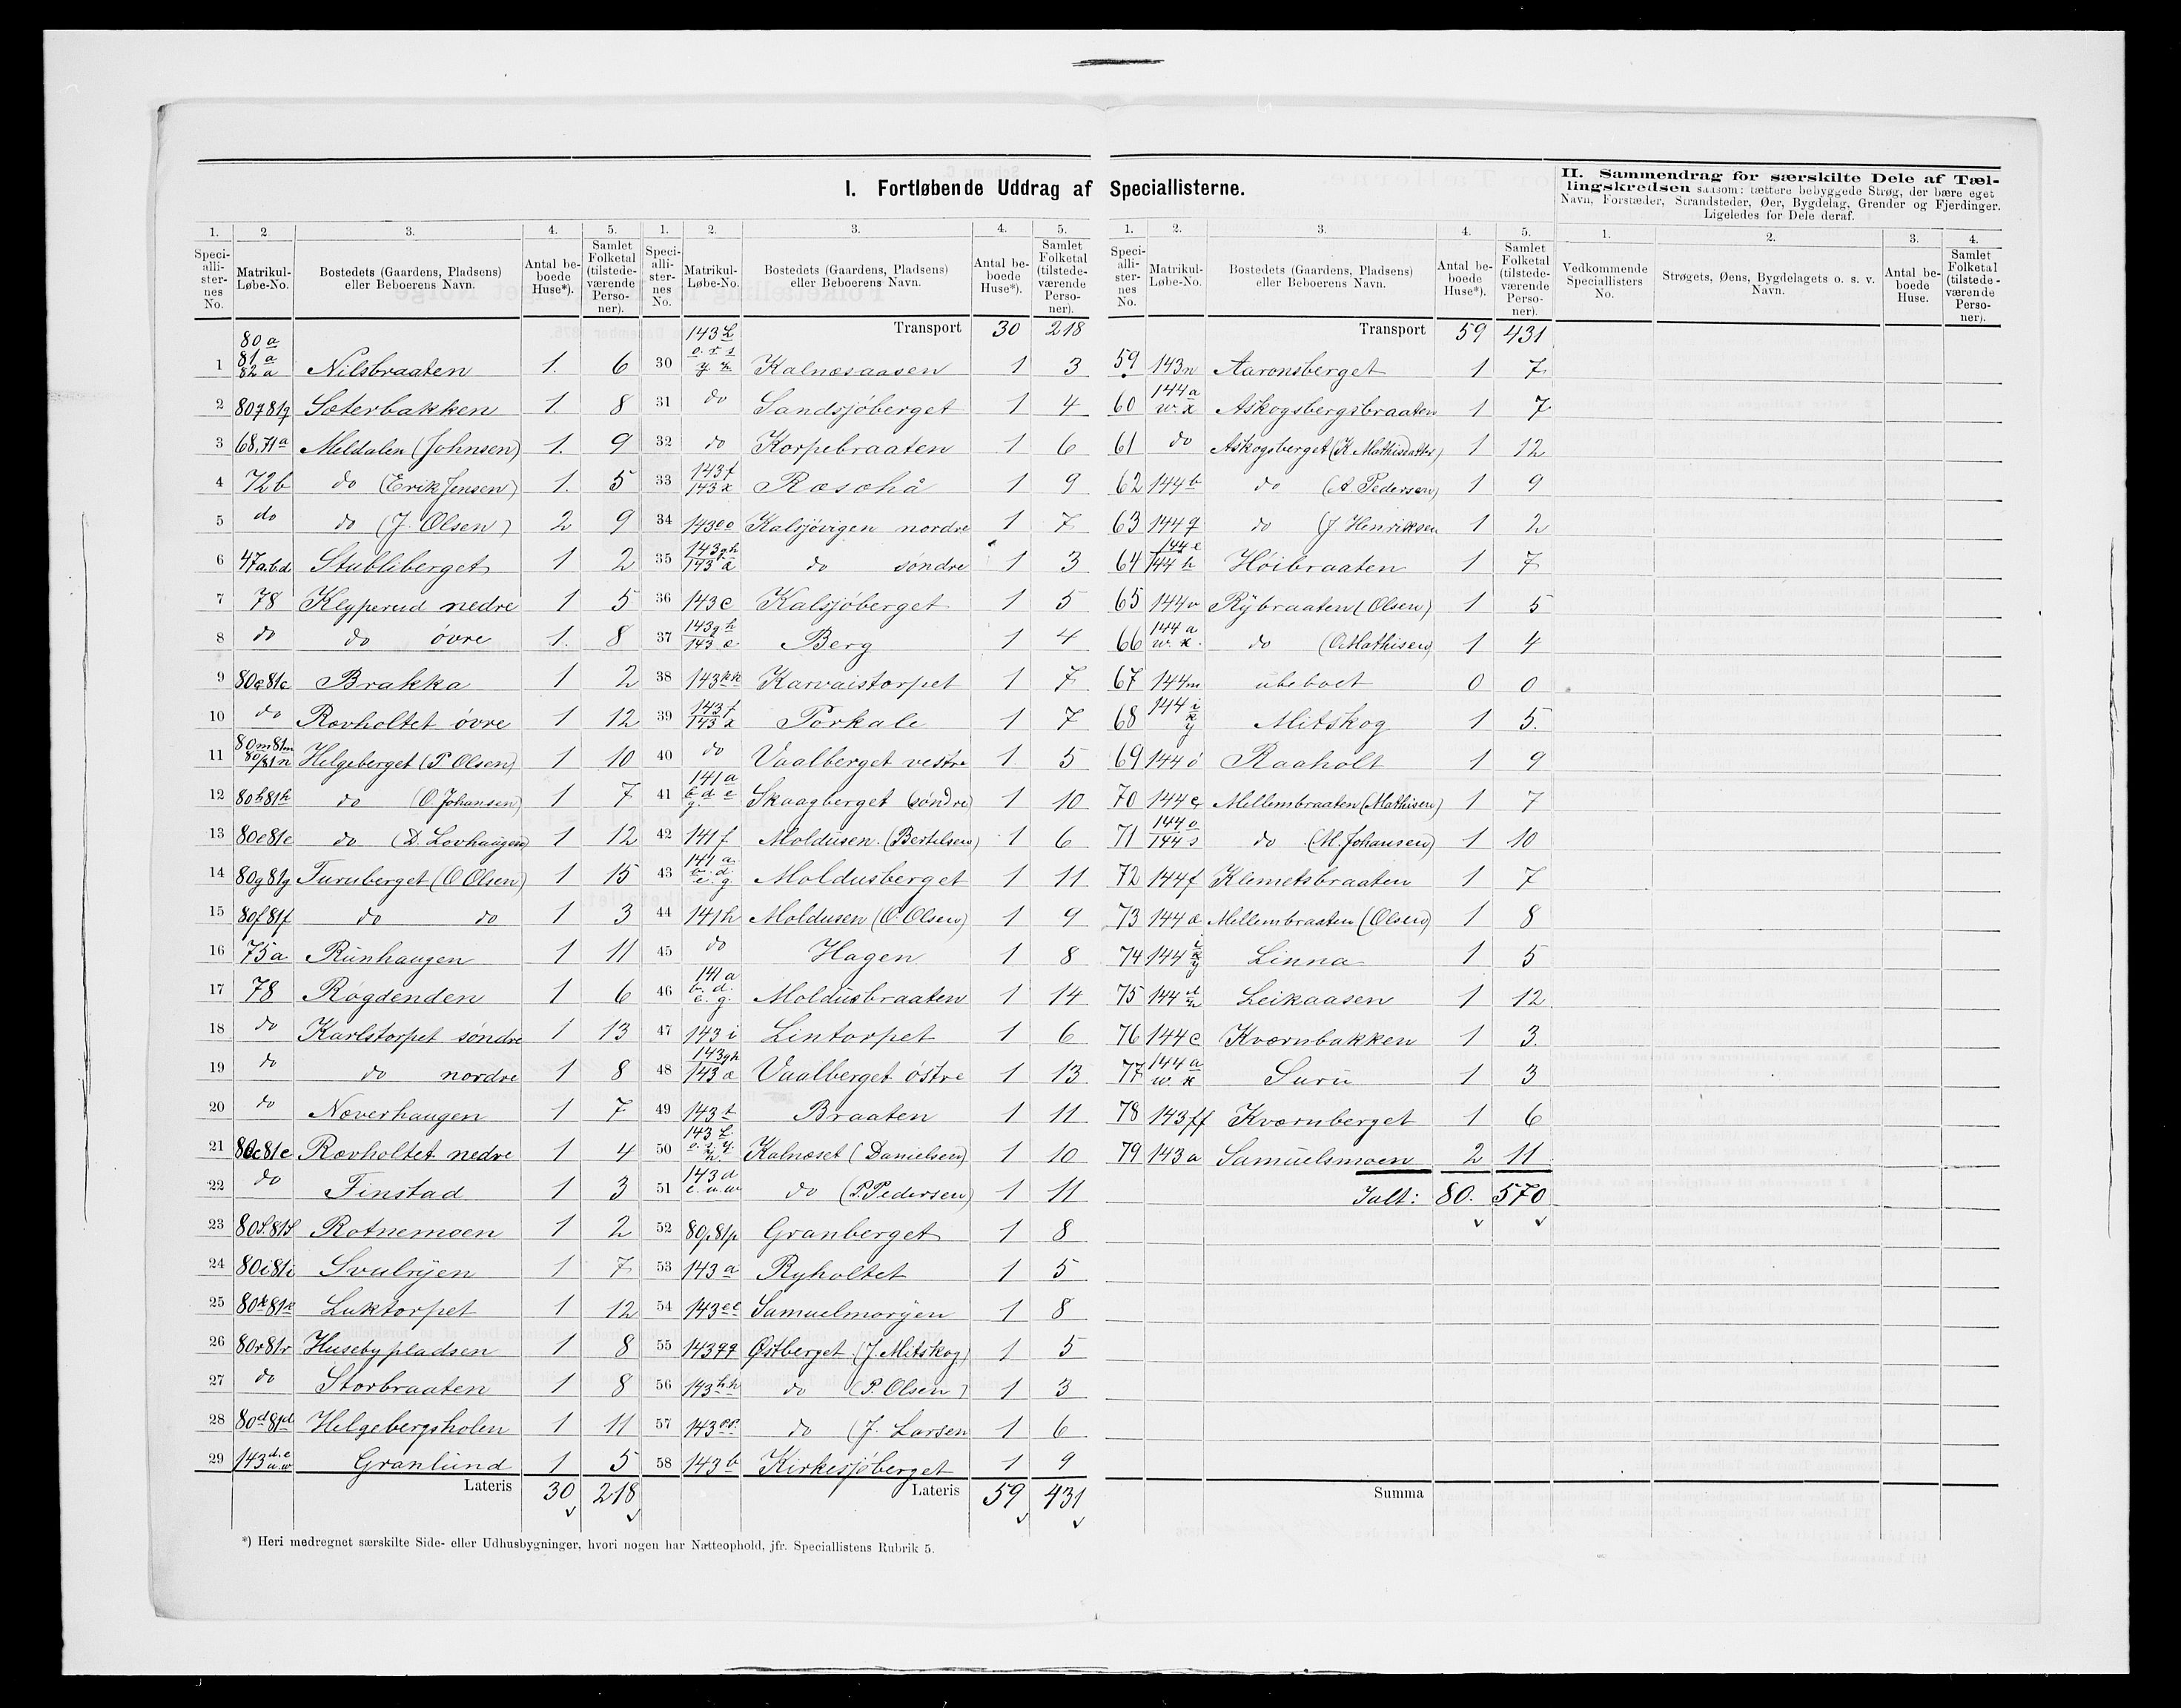 I. Fortløbende Uddrag af Speciallisterne.
1. 2. 3. 4. 5.
Speciallisternes No. Matrikul-Løbe-No. Bostedets (Gaardens, Pladsens) eller Beboerens Navn. Antal beboede Huse*). Samlet Folketal (tilstedeværende Personer).
1 80a 81a 82a Nilsbraaten 1. 6
2 80q 81q Sæterbakken 1. 8
3 68, 71a Meldalen (Johnsen) 1. 9
4 72b do (Erik Jensen) 1. 5
5 do do (J. Olsen) 2 9
6 47a.b.d Stubliberget 1 2
7 78 Klyperud nedre 1 5
8 do do övre 1. 8
9 80c 81c Brakka 1 2
10 do Rovholtet övre 1 12
11 80m 81m 80/81n Helgeberget (P. Olsen) 1 10
12 80h 81h do (O. Johansen) 1 7
13 80e 81e do (D. Lovhaugen) 1 12
14 80g 81g Furuberget (O Olsen) 1 15
15 80f 81f do do 1 3
16 75a Runhaugen 1 11
17 78 Røgdenden 1 6
18 do Karlstorpet søndre 1 13
19 do do nordre 1 8
20 do Næverhaugen 1 7
21 80c 81c Rævholtet nedre 1 4
22 do Finstad 1 3
23 80l. 81l Rotnemoen 1 2
24 80i 81i Svulrÿen 1 7
25 80k 81k Luktorpet 1 12
26 80r 81r Husebypladsen 1 8
27 do Storbraaten 1 8
28 80d 81d Helgebergsholen 1 11
29 143 d.e u.w Granlund 1 5
Lateris 30 218
1. 2. 3. 4. 5.
Speciallisternes No. Matrikul-Løbe-No. Bostedets (Gaardens, Pladsens) eller Beboerens Navn. Antal beboede Huse*). Samlet Folketal (tilstedeværende Personer).
Transport 30 218
30 143 l o. r s y z Kalnæsaasen 1 3
31 do Sandsjöberget 1 4
32 do Korpebraaten 1 6
33 143f 143x Rosohå 1 9
34 143oo Kalsjövigen nordre 1 7
35 143gh 143 a do søndre 1 3
36 143c Kalsjöberget 1 5
37 143g h 143 a Berg 1 4
38 143kk Karvaistorpet 1 7
39 143f 143x Porkale 1 7
40 do Vaalberget vestre 1 5
41 141a b d e g Skaagberget (söndre) 1 10
42 141f Moldusen. (Bertelsen) 1 6
43 141 a b. d. e. g Moldusberget 1 11
44 141h Moldusen (O. Olsen) 1 9
45 do Hagen 1 8
46 141a b. d. e. g. Moldusbraaten 1 14
47 143 i Lintorpet 1 6
48 143gh 143 a Vaalberget östre 1 13
49 143t Braaten 1 11
50 143 l. o. s. y. z. Kalnæset (Danielsen) 1 10
51 143d e. u. w do (P. Pedersen) 1 11
52 80p 81p Granberget 1 8
53 143a Ryholtet 1 5
54 143ee Samuelmorÿen 1 8
55 143qq Østberget. (J. Mitskog) 1 5
56 143hh do (P. Olsen) 1 3
57 143pp do (J. Larsen 1 6
58 143b Kirkesjöberget 1 9
Lateris 59 431
1. 2. 3. 4. 5.
Speciallisternes No. Matrikul-Løbe-No. Bostedets (Gaardens, Pladsens) eller Beboerens Navn. Antal beboede Huse*). Samlet Folketal (tilstedeværende Personer).
Transport 59 431
59 143n Aaronsberget 1 7
60 144a w. x Askogsbergsbraaten 1 7
61 do Askogsberget (K. Mathisdatter) 1 12
62 144b do (A. Pedersen) 1 9
63 144q do (J. Henriksen 1 2
64 144e 144h Høibraaten 1 7
65 144v Rÿbraaten (Olsen) 1 5
66 144 a w. x. do (O Mathisen) 1 4
67 144m ubeboet 0 0
68 144 i k y Mitskog 1 5.
69 144ö Raaholt 1 9
70 144c Mellembraaten (Mathisen) 1 7
71 144o 144s do (M. Johansen) 1 10
72 144f Klemetsbraaten 1 7
73 144æ Mellembraaten (Olsen) 1 8
74 144 i k y Linna 1 5
75 144 d n Leikaasen 1 12
76 144c Kværnbakken 1 3
77 144a w. x Suru 1 3
78 143ff Kværnberget 1 6
79 143a Samuelsmoen 2 11
Ialt: 80. 570
Summa
II. Sammendrag for særskilte Dele af Tællingskredsen saasom: tættere bebyggede Strøg, der bære eget Navn, Forstæder, Strandsteder, Øer, Bygdelag, Grender og Fjerdinger. Ligeledes for Dele deraf.
1. 2. 3. 4.
Vedkommende Speciallisters No. Strøgets, Øens, Bygdelagets o. s. v. Navn. Antal beboede Huse. Samlet Folketal (tilstedeværende Personer).
*) Heri medregnet særskilte Side- eller Udhusbygninger, hvori nogen har Natteophold, jfr. Speciallistens Rubrik 5.